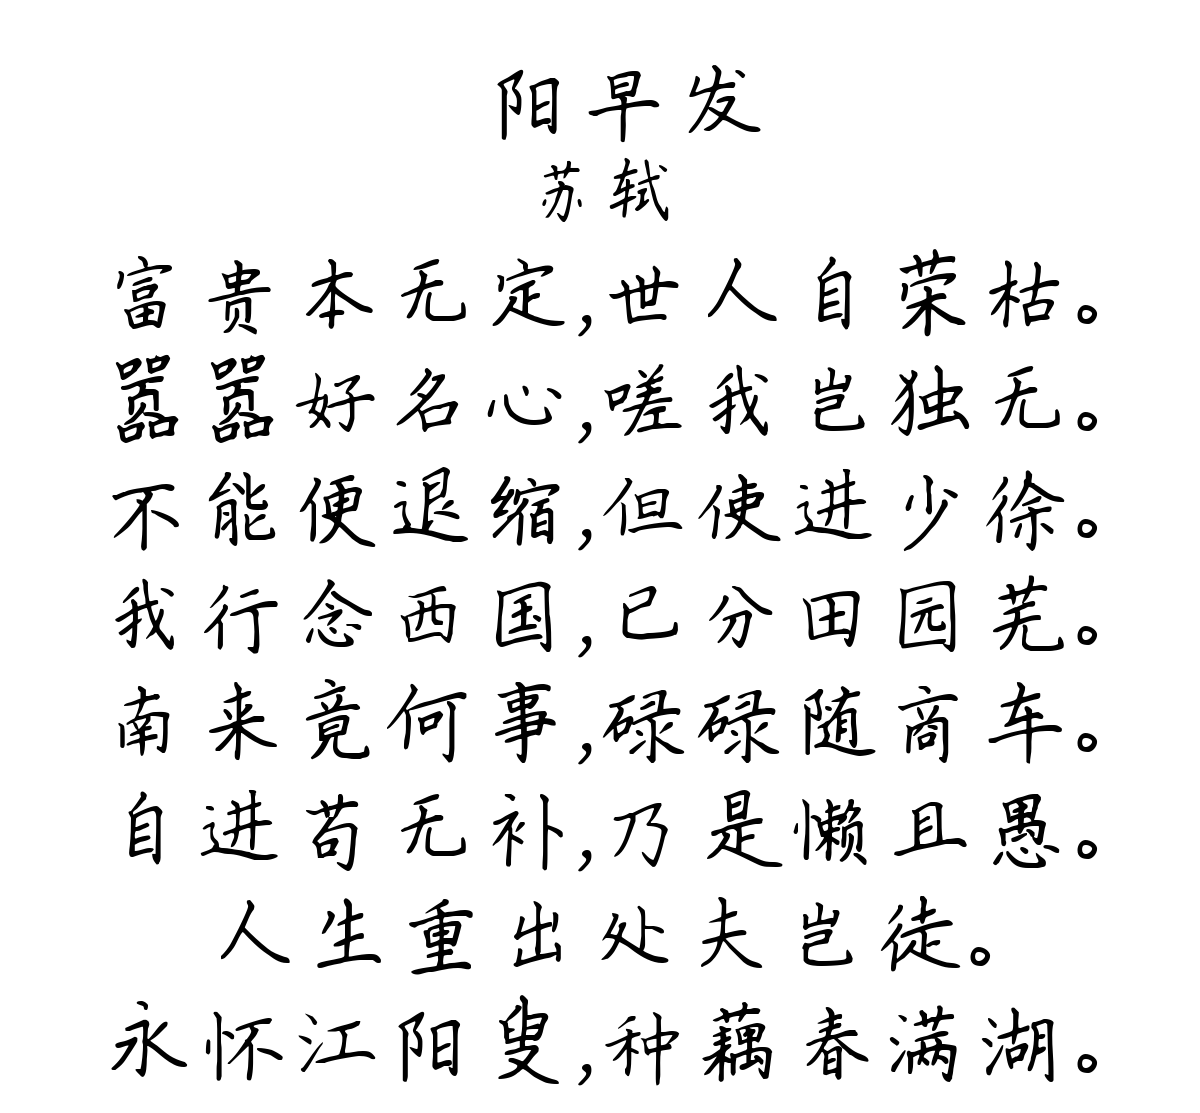 阳早发
苏轼
富贵本无定,世人自荣枯。
嚣嚣好名心,嗟我岂独无。
不能便退缩,但使进少徐。
我行念西国,已分田园芜。
南来竟何事,碌碌随商车。
自进苟无补,乃是懒且愚。
人生重出处夫岂徒。
永怀江阳叟,种藕春满湖。